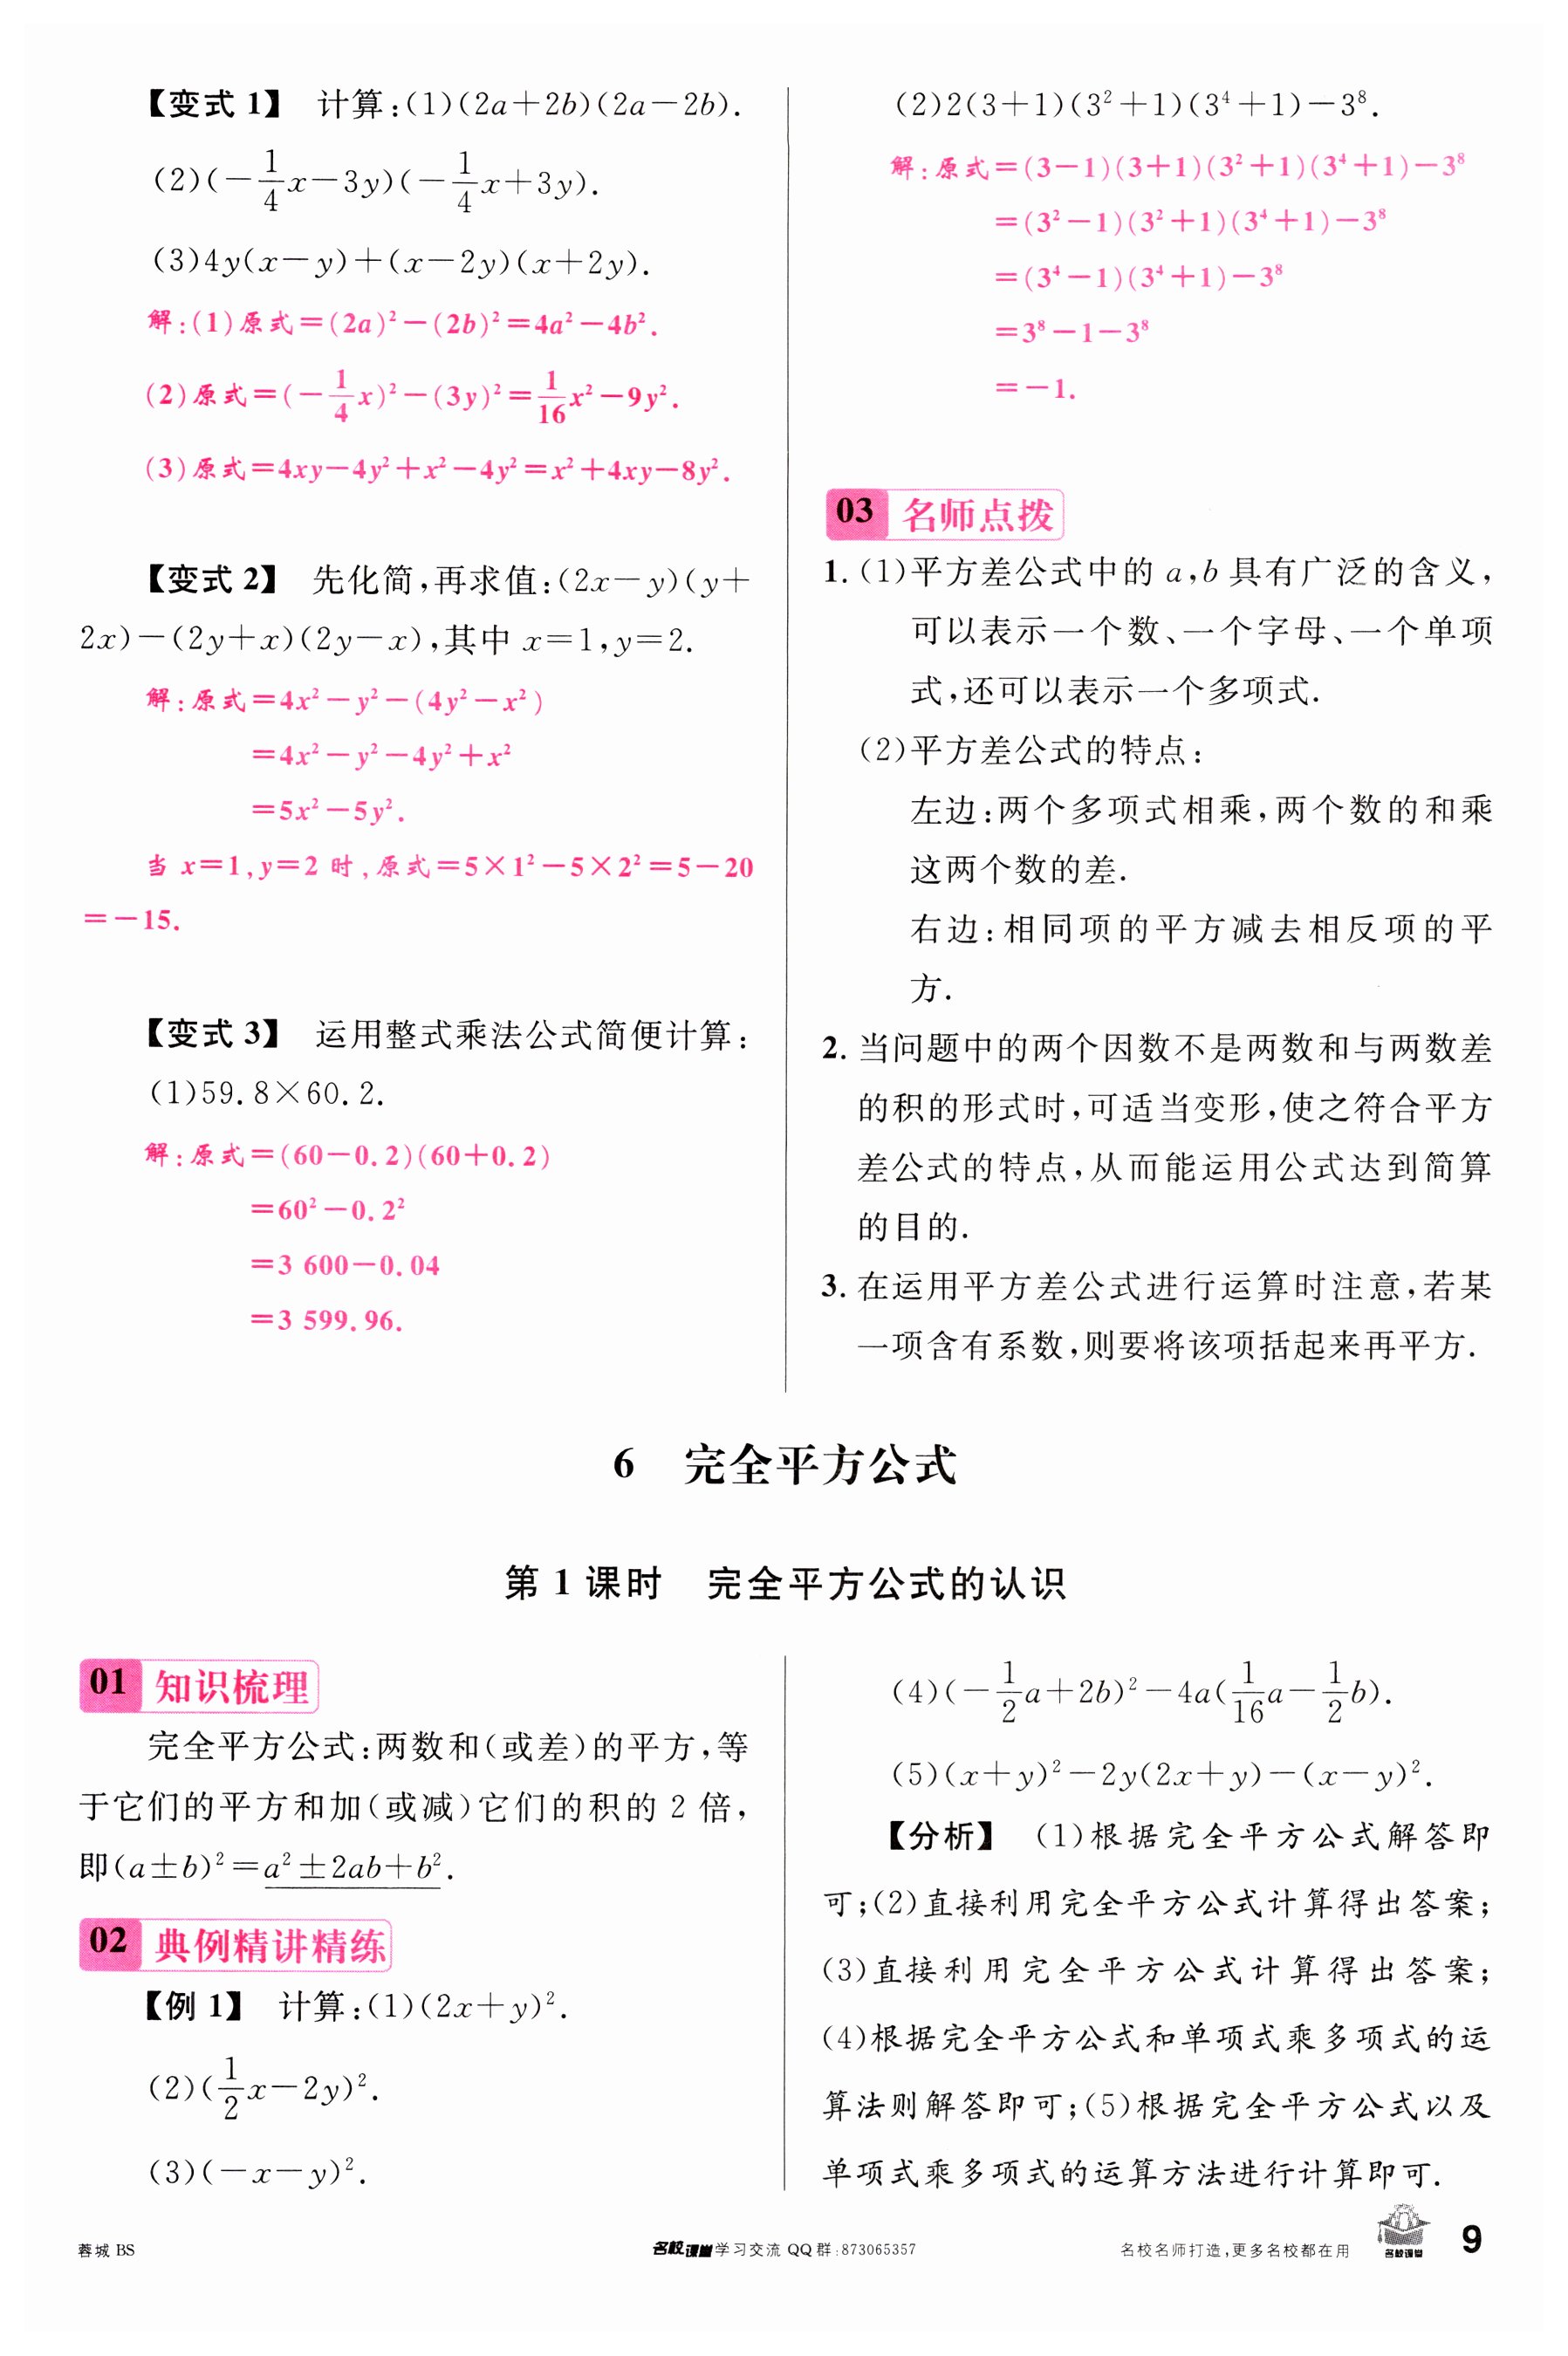 【变式 1】 计算:(1)(2a+2b)(2a-2b).
(2)(-1/4x-3y)(-1/4x+3y).
(3)4y(x-y)+(x-2y)(x+2y).
解:(1)原式=(2a)²-(2b)²=4a²-4b².
(2)原式=(-1/4x)²-(3y)²=1/16x²-9y².
(3)原式=4xy-4y²+x²-4y²=x²+4xy-8y².
【变式 2】 先化简,再求值:(2x-y)(y+
2x)-(2y+x)(2y-x),其中 x=1,y=2.
解:原式=4x²-y²-(4y²-x²)
=4x²-y²-4y²+x²
=5x²-5y².
当 x=1,y=2 时,原式=5×1²-5×2²=5-20
=-15.
【变式 3】 运用整式乘法公式简便计算:
(1)59.8×60.2.
解:原式=(60-0.2)(60+0.2)
=60²-0.2²
=3 600-0.04
=3 599.96.
(2)2(3+1)(3²+1)(3⁴+1)-3⁸.
解:原式=(3-1)(3+1)(3²+1)(3⁴+1)-3⁸
=(3²-1)(3²+1)(3⁴+1)-3⁸
=(3⁴-1)(3⁴+1)-3⁸
=3⁸-1-3⁸
=-1.
03 名师点拨
1. (1)平方差公式中的 a,b 具有广泛的含义,
可以表示一个数、一个字母、一个单项
式,还可以表示一个多项式.
(2)平方差公式的特点:
左边:两个多项式相乘,两个数的和乘
这两个数的差.
右边:相同项的平方减去相反项的平
方.
2. 当问题中的两个因数不是两数和与两数差
的积的形式时,可适当变形,使之符合平方
差公式的特点,从而能运用公式达到简算
的目的.
3. 在运用平方差公式进行运算时注意,若某
一项含有系数,则要将该项括起来再平方.
6 完全平方公式
第 1 课时 完全平方公式的认识
01 知识梳理
完全平方公式:两数和(或差)的平方,等
于它们的平方和加(或减)它们的积的 2 倍,
即(a±b)²=a²±2ab+b².
02 典例精讲精练
【例 1】 计算:(1)(2x+y)².
(2)(1/2x-2y)².
(3)(-x-y)².
(4)(-1/2a+2b)²-4a(1/16a-1/2b).
(5)(x+y)²-2y(2x+y)-(x-y)².
【分析】 (1)根据完全平方公式解答即
可;(2)直接利用完全平方公式计算得出答案;
(3)直接利用完全平方公式计算得出答案;
(4)根据完全平方公式和单项式乘多项式的运
算法则解答即可;(5)根据完全平方公式以及
单项式乘多项式的运算方法进行计算即可.
蓉城 BS
名校课堂学习交流 QQ 群:873065357
名校名师打造,更多名校都在用
名校课堂
9